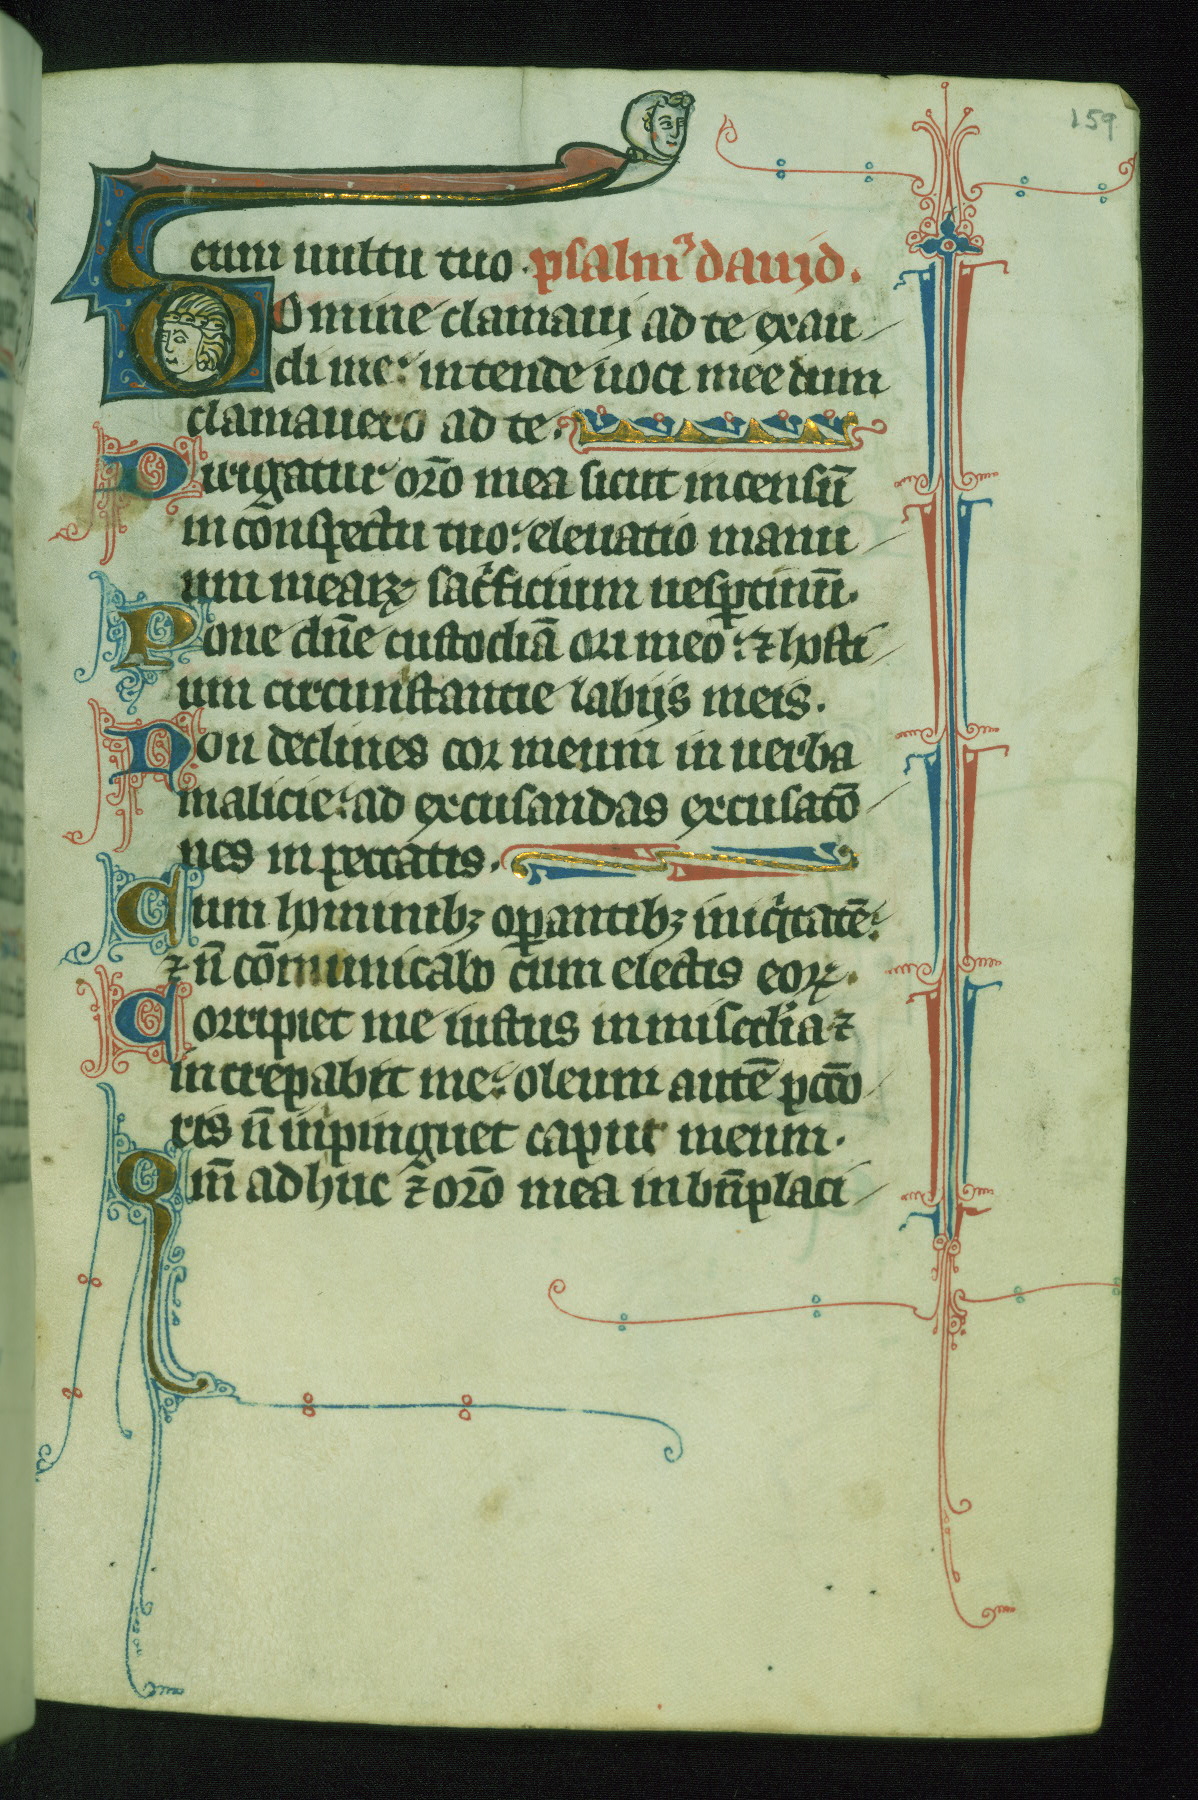 159
cum uultu tuo. psalm᾽ dauid.
Domine clamaui ad te exau
di me: intende uoci mee dum
clamauero ad te.
Dirigatur orō mea sicut incensū
in cōnspectu tuo: eleuatio manu
um mearꝝ sac̄ficium uesꝑtinū.
Pone dn̄e custodiā ori meo: ⁊ hosti
um circunstantie labijs meis.
Non declines cor meum in uerba
malicie: ad excusandas excusatō
nes in peccatis.
Cum hominibꝫ oꝑantibꝫ iniq̇tatē:
⁊ n̄ cōmunicabo cum electis eoꝝ.
Corripiet me iustus in miscd̓ia ⁊
increpabit me: oleum autē pctō
ris n̄ inpinguet caput meum.
Qm̄ adhuc ⁊̄ orō mea in bn̄placi